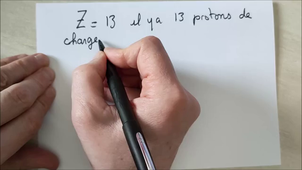 Z = 13 il y a 13 protons de
charge